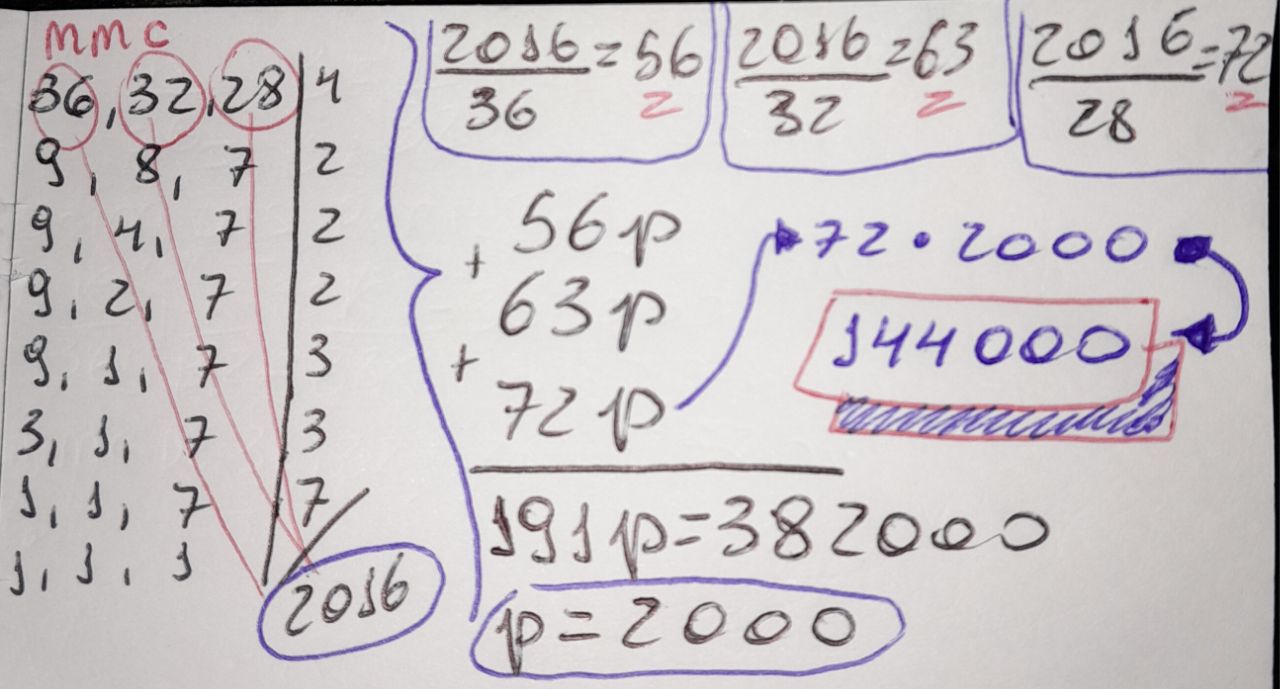 mmc
36, 32, 28 | 4
9, 8, 7 | 2
9, 4, 7 | 2
9, 2, 7 | 2
9, 1, 7 | 3
3, 1, 7 | 3
1, 1, 7 | 7
1, 1, 1
2016
2016/36 = 56
2016/32 = 63
2016/28 = 72
56p
+ 63p
+ 72p
191p=382000
p=2000
72 · 2000
144000